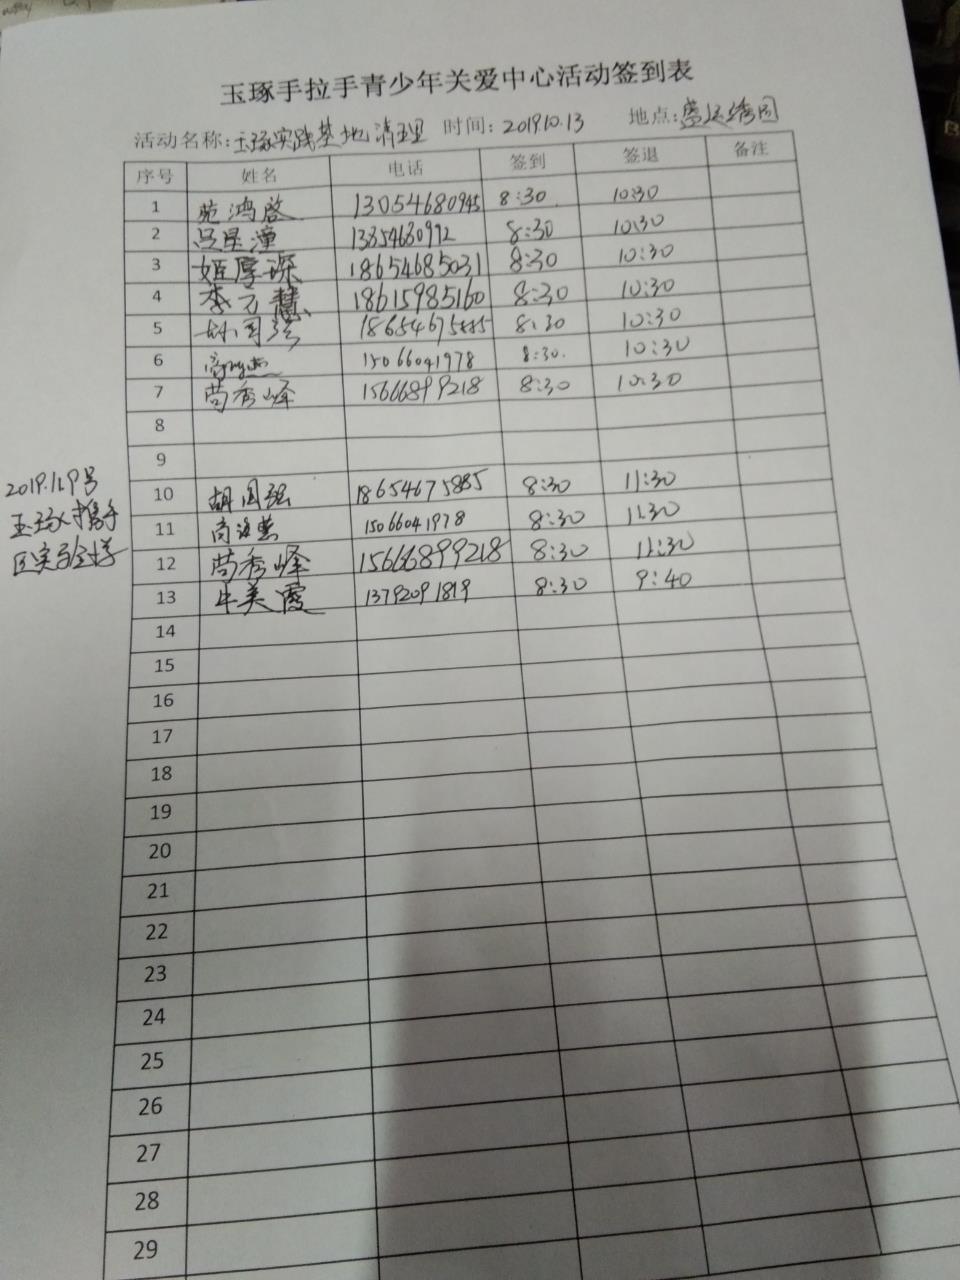 玉琢手拉手青少年关爱中心活动签到表
活动名称:玉琢实践基地清理 时间:2019.10.13 地点:盛运绣园
序号 姓名 电话 签到 签退 备注
1 苑鸿啟 13054680945 8:30 10:30
2 吕星潼 13854680992 8:30 10:30
3 姬厚琛 18654685031 8:30 10:30
4 李万慧 18615985160 8:30 10:30
5 胡国强 18654675885 8:30 10:30
6 15066041978 8:30. 10:30
7 苘秀峰 15666899218 8:30 10:30
8
9
2019.11.9号
玉琢人携手
区实验学
10 胡国强 18654675885 8:30 11:30
11 尚海燕 15066041978 8:30 11:30
12 苘秀峰 15666899218 8:30 11:30
13 牛美霞 13792091819 8:30 9:40
14
15
16
17
18
19
20
21
22
23
24
25
26
27
28
29